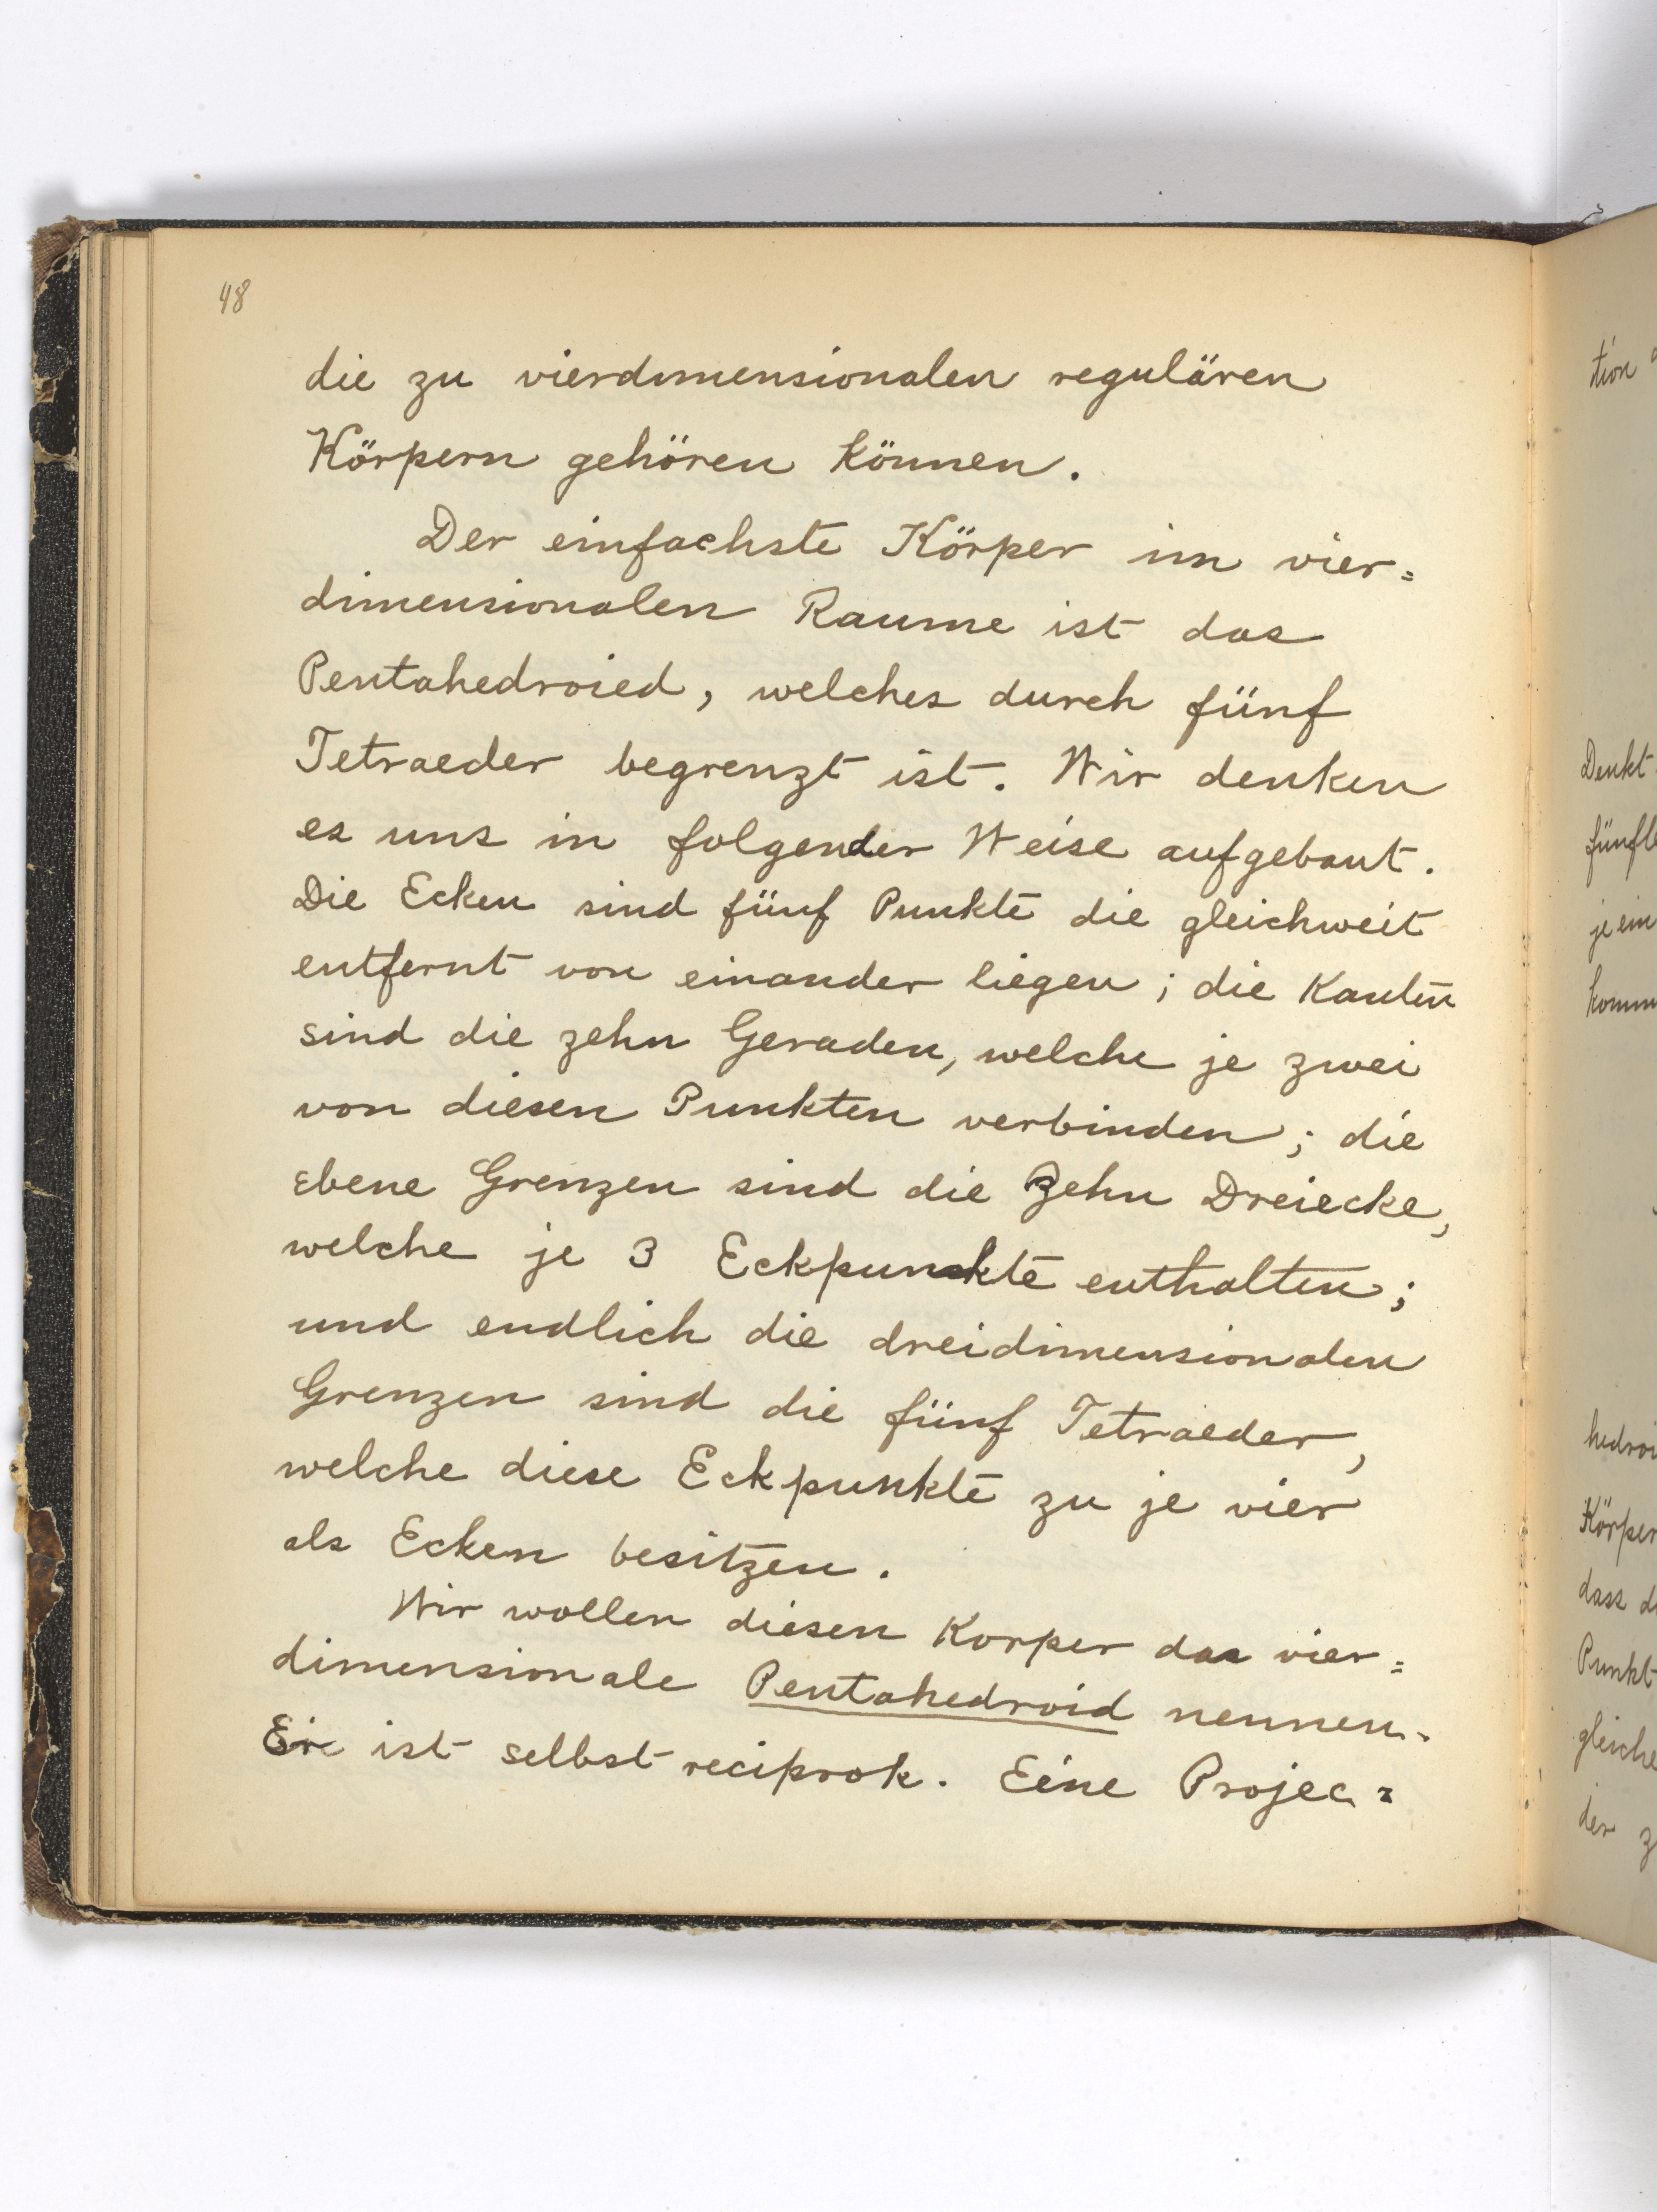 48
die zu vierdimensionalen regulären
Körpern gehören können.
Der einfachste Körper im vier=
dimensionalen Raume ist das
Pentahedroied, welches durch fünf
Tetraeder begrenzt ist. Wir denken
es uns in folgender Weise aufgebaut.
Die Ecken sind fünf Punkte die gleichweit
entfernt von einander liegen; die Kanten
sind die zehn Geraden, welche je zwei
von diesen Punkten verbinden; die
ebene Grenzen sind die Zehn Dreiecke,
welche je 3 Eckpunkte enthalten;
und endlich die dreidimensionalen
Grenzen sind die fünf Tetraeder,
welche diese Eckpunkte zu je vier
als Ecken besitzen.
Wir wollen diesen Korper das vier=
dimensionale Pentahedroid nennen.
Er ist selbst reciprok. Eine Projec=
tion
Denkt
fünfle
je ein
komm
hedroi
Körper
dass d
Punkt
gleiche
der z